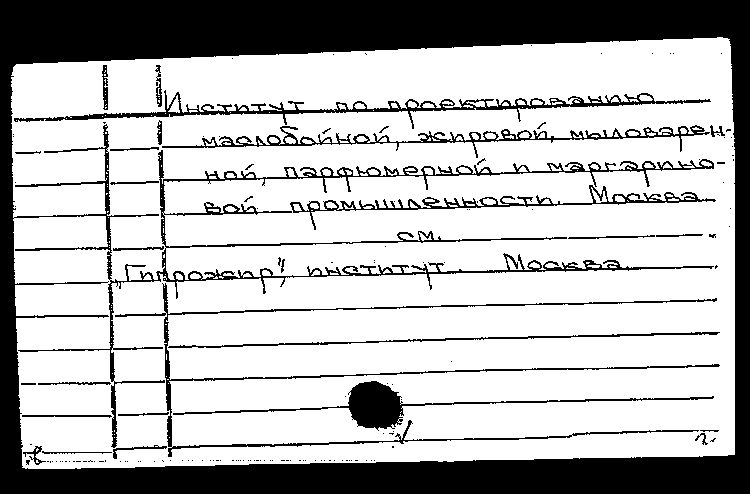 Институт по проектированию
маслобойной, жировой, мыловарен-
ной, парфюмерной и маргарино-
вой промышленности. Москва
см.
„Гипрожир", институт. Москва.